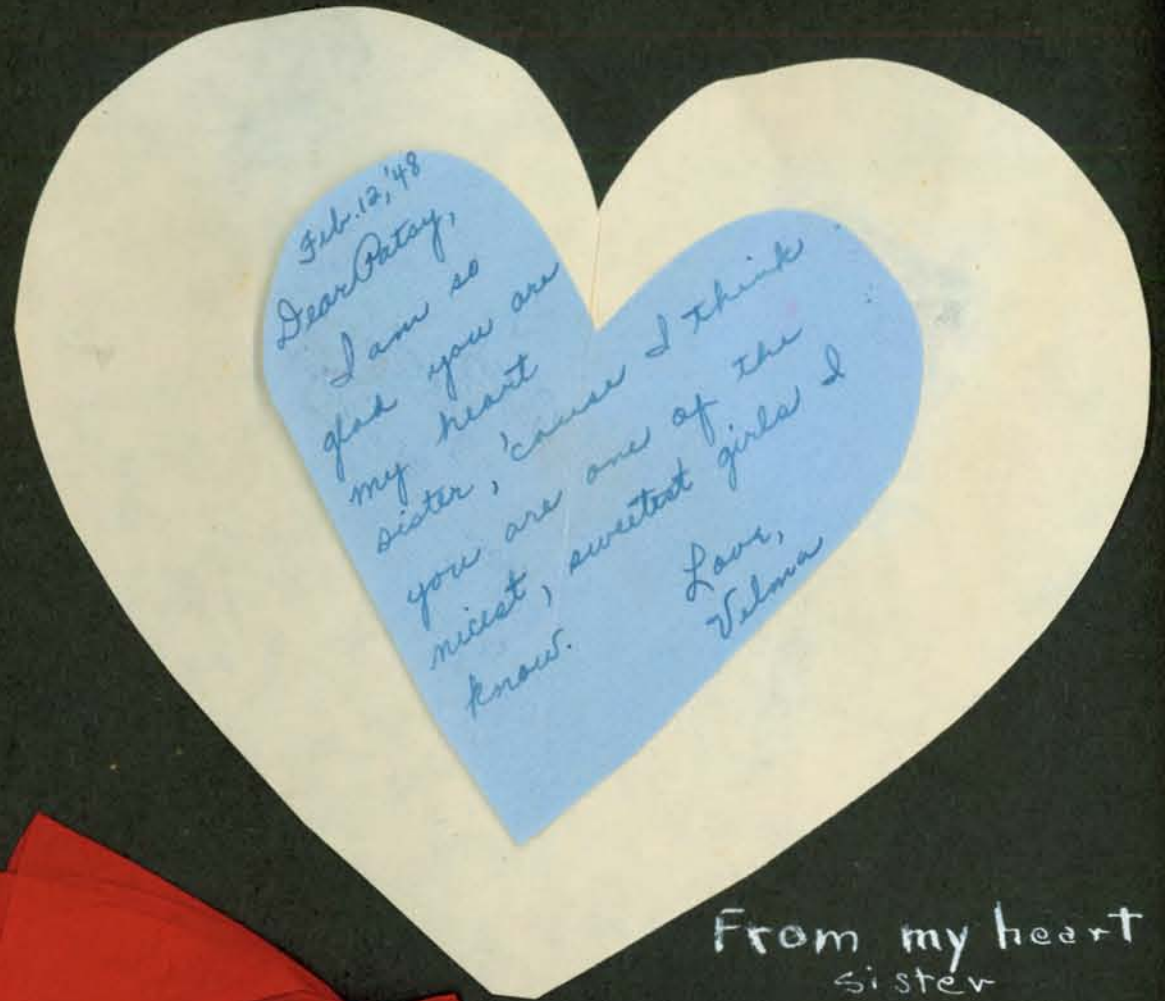 Feb. 12, '48
Dear Patsy,
I am so
glad you are
my heart
sister, 'cause I think
you are one of the
nicest, sweetest girls I
know.
Love,
Velma
From my heart
sister